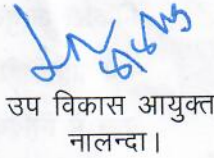 उप विकास आयुक्त
नालन्दा।